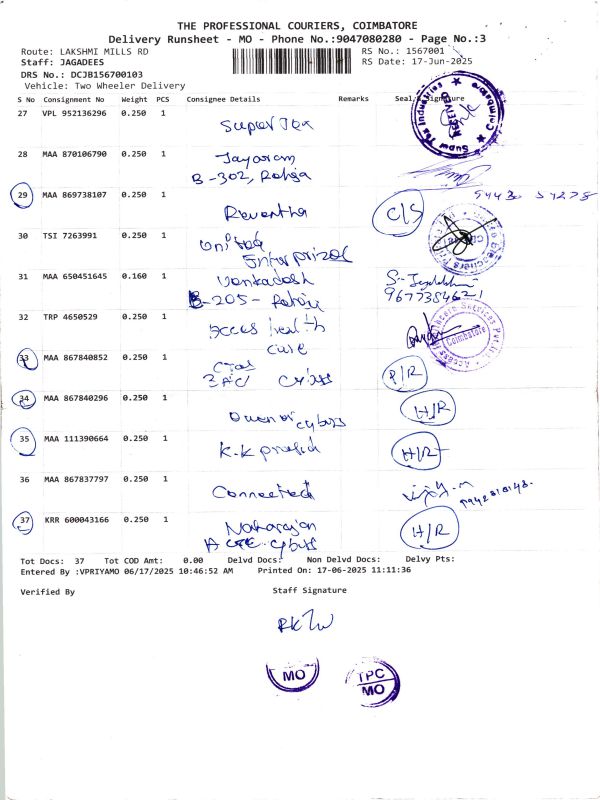 THE PROFESSIONAL COURIERS, COIMBATORE
Delivery Runsheet - MO - Phone No.:9047080280 - Page No.:3
Route: LAKSHMI MILLS RD
RS No.: 1567001
Staff: JAGADEES
RS Date: 17-Jun-2025
DRS No.: DCJB156700103
Vehicle: Two Wheeler Delivery
S No Consignment No Weight PCS Consignee Details Remarks Seal/Signature
27 VPL 952136296 0.250 1
28 MAA 870106790 0.250 1 Jayaram
B-302, Raheja
29 MAA 869738107 0.250 1 Revantha C/S
30 TSI 7263991 0.250 1 United
Enterprizes
31 MAA 650451645 0.160 1 Venkadesh
B-205-
9677384621
32 TRP 4650529 0.250 1 health
care
Coimbatore
33 MAA 867840852 0.250 1 P/R
34 MAA 867840296 0.250 1 H/R
35 MAA 111390664 0.250 1 K.K prasad H/R
36 MAA 867837797 0.250 1 Connected
37 KRR 600043166 0.250 1 H/R
Tot Docs: 37 Tot COD Amt: 0.00 Delvd Docs: Non Delvd Docs: Delvy Pts:
Entered By :VPRIYAMO 06/17/2025 10:46:52 AM Printed On: 17-06-2025 11:11:36
Verified By Staff Signature
MO
TPC
MO